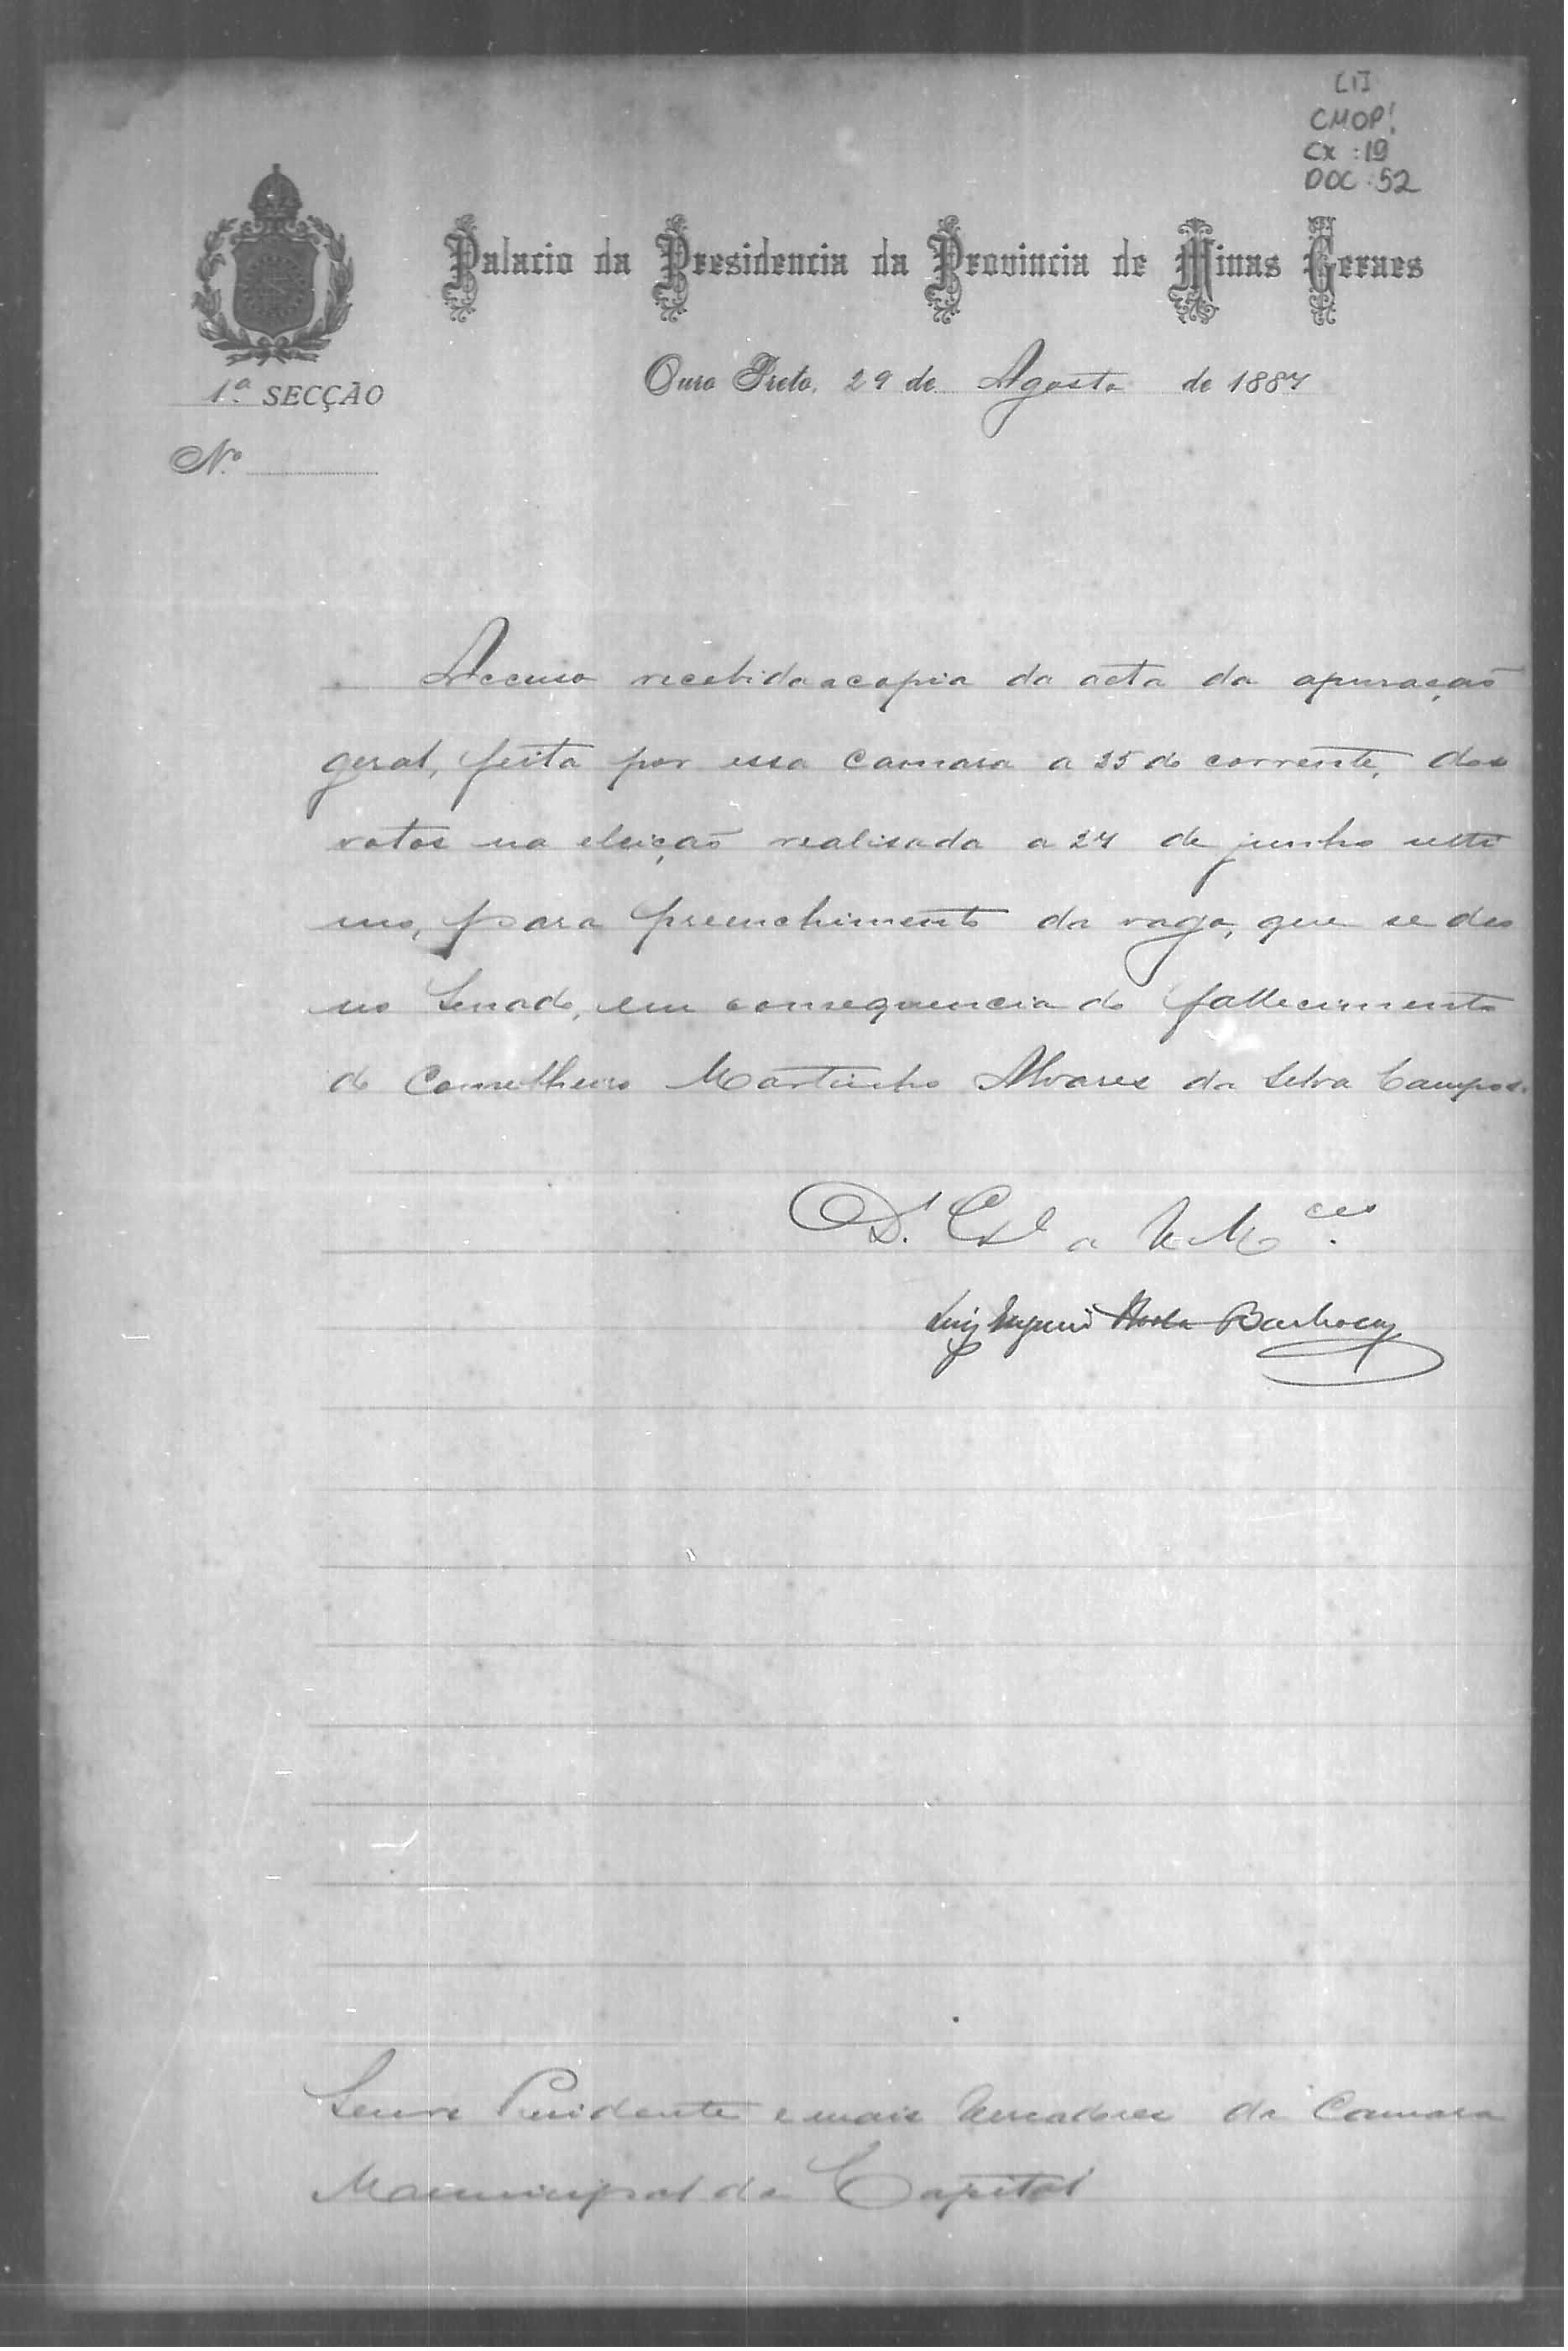 [1]
CMOP!
CX : 19
DOC : 52
Palacio da Presidencia da Provincia de Minas Geraes
1.ª SECÇÃO
Ouro Preto, 29 de Agosto de 1887
N.º
Accuso recebida a copia da acta da apuração
geral, feita por essa Camara a 25 do corrente, dos
votos na eleição realisada a 27 de junho ulti
mo, para preenchimento da vaga, que se deu
no Senado, em consequencia do fallecimento
do Conselheiro Martinho Alvares da Silva Campos.
D.s G.de a V. M.ces
Luiz Eugenio Horta Barbosa
Senres Presidente e mais Vereadores da Camara
Municipal da Capital